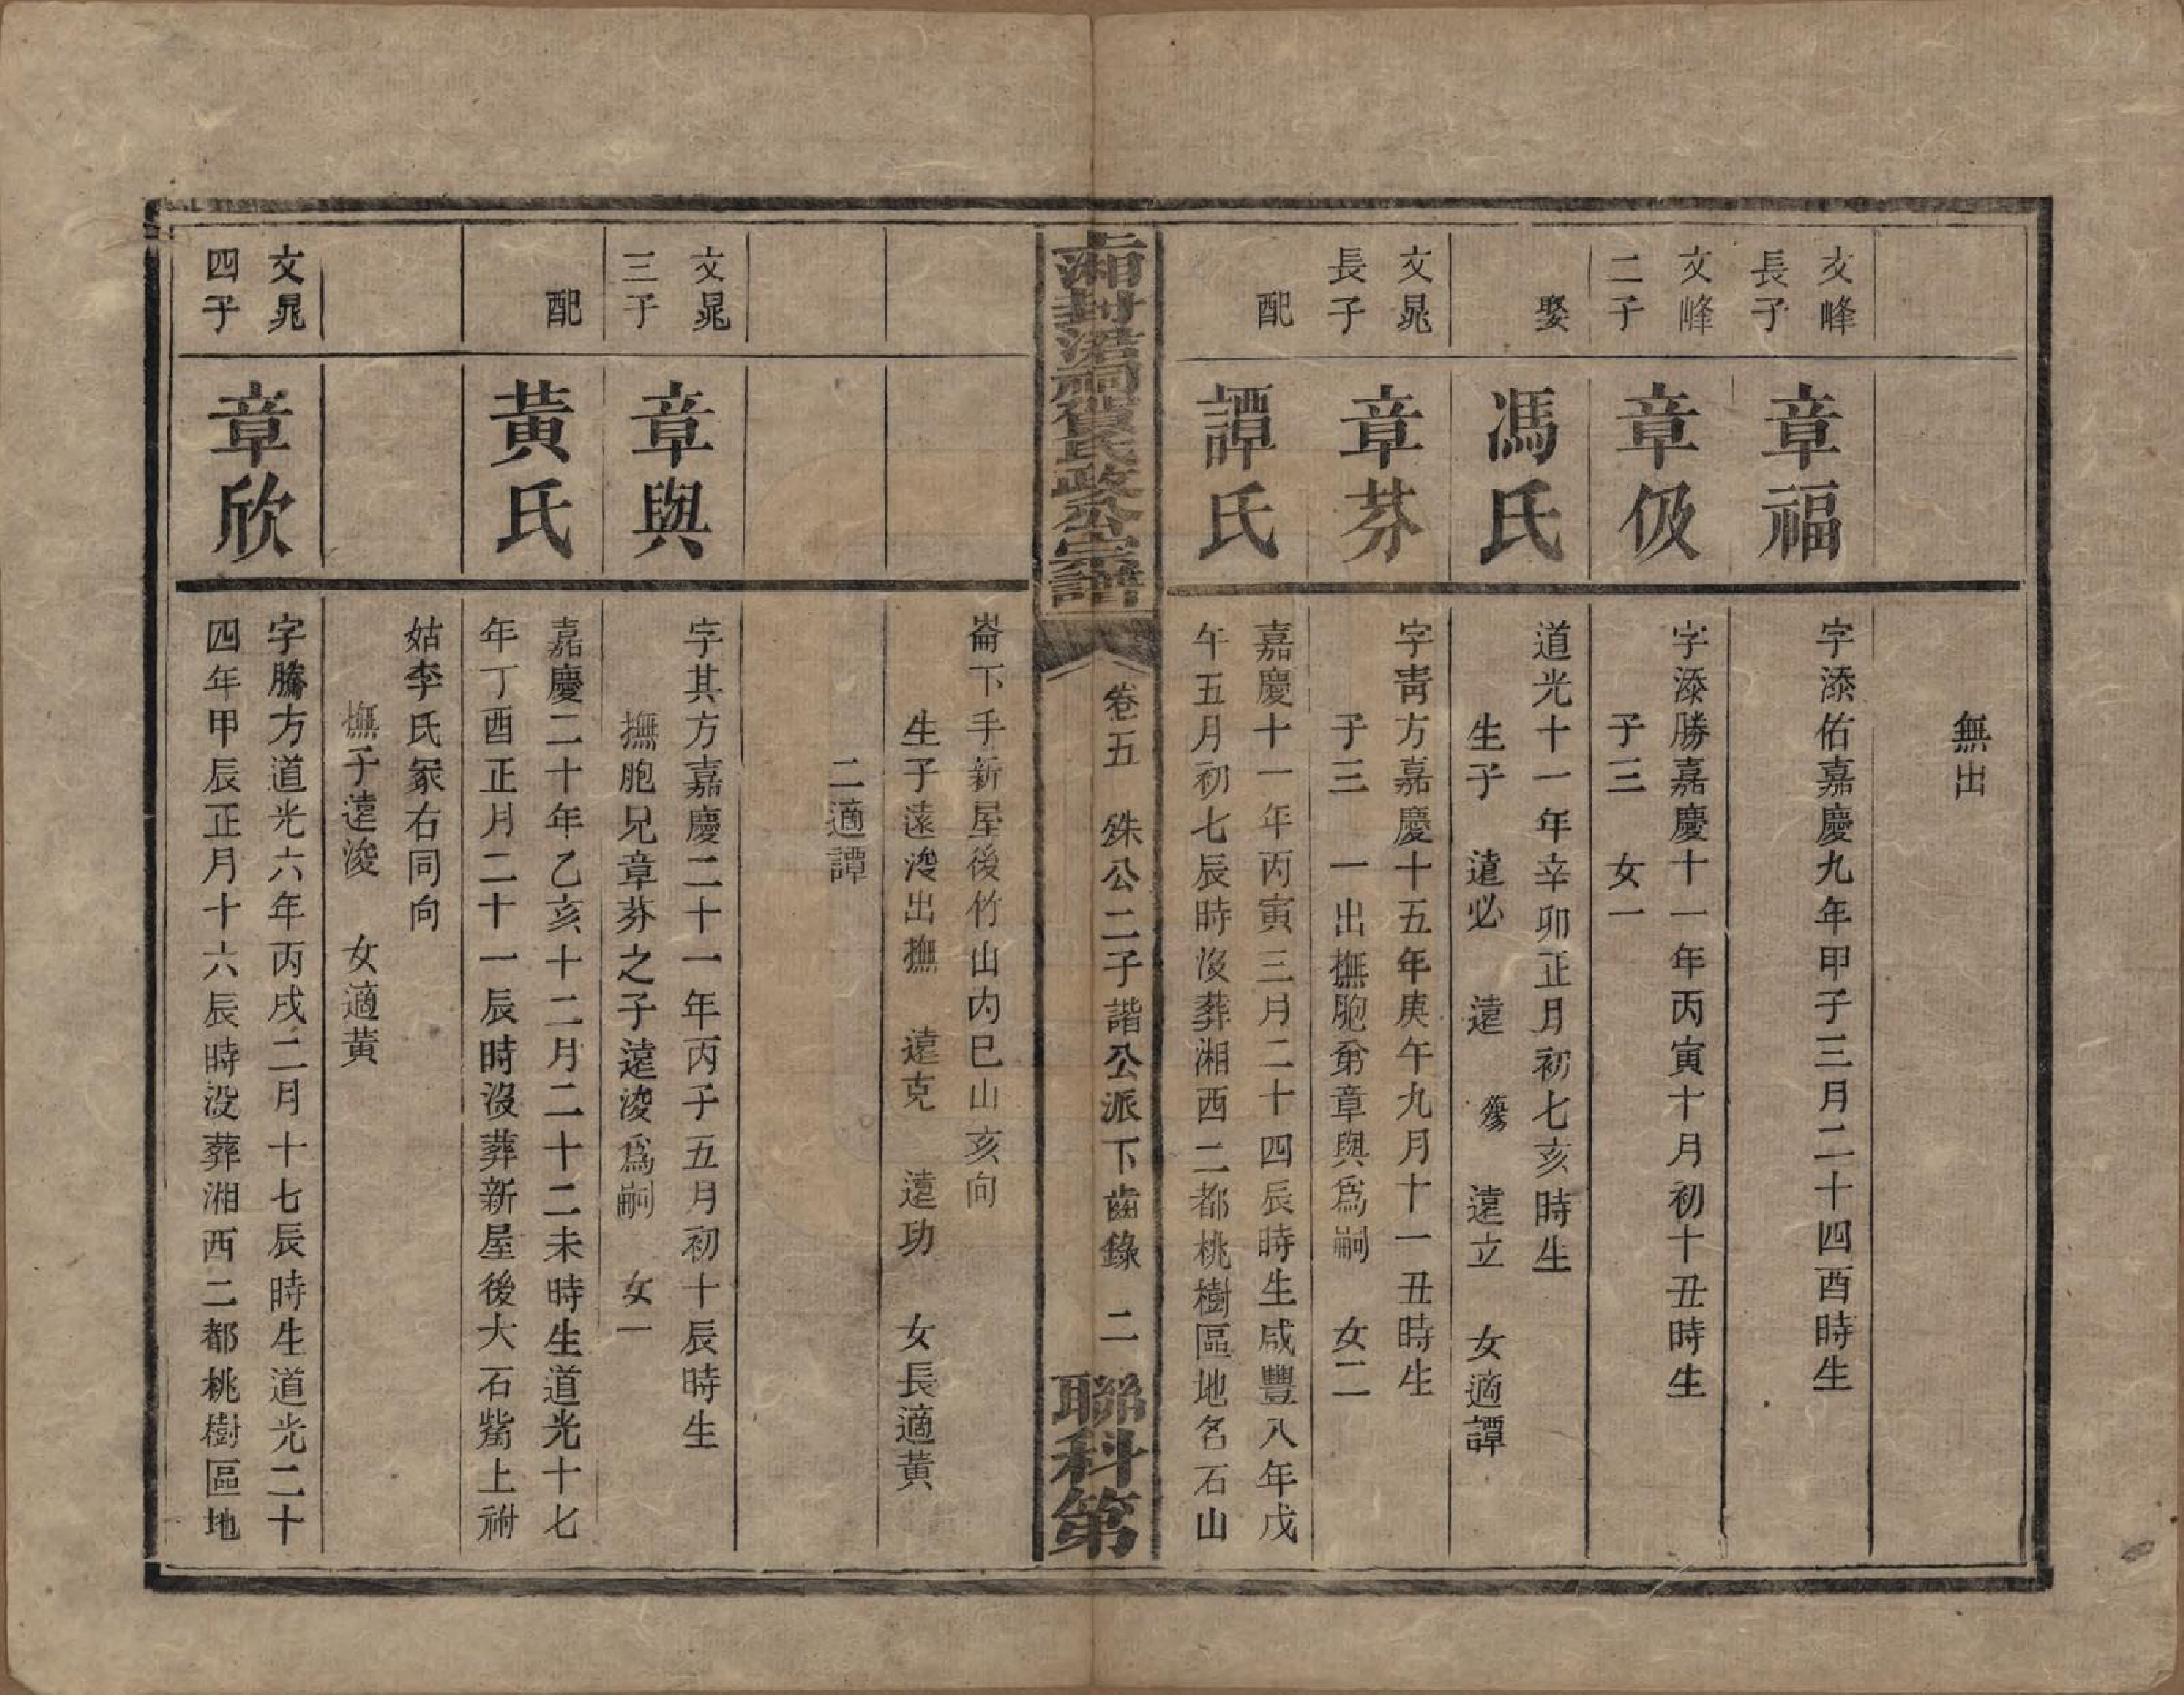 無出
文峰
長子
章福
字添佑嘉慶九年甲子三月二十四酉時生
文峰
二子
章伋
字添勝嘉慶十一年丙寅十月初十丑時生
子三　女一
娶
馮氏
道光十一年辛卯正月初七亥時生
生子　遠必　遠　遠立　女適譚
文晃
長子
章芬
字靑方嘉慶十五年庚午九月十一丑時生
子三　一出撫胞弟章與爲嗣　女二
配
譚氏
嘉慶十一年丙寅三月二十四辰時生咸豐八年戊
午五月初七辰時沒葬湘西二都桃樹區地名石山
湘封浯祠賀氏政公宗譜
卷五　殊公二子諧公派下齒錄　二
聯科第
崙下手新屋後竹山內巳山亥向
生子遠浚出撫　遠克　遠功　女長適黃
二適譚
文晃
三子
章與
字其方嘉慶二十一年丙子五月初十辰時生
撫胞兄章芬之子遠浚爲嗣　女一
配
黃氏
嘉慶二十年乙亥十二月二十二未時生道光十七
年丁酉正月二十一辰時沒葬新屋後大石觜上祔
姑李氏冢右同向
撫子遠浚　女適黃
文晃
四子
章欣
字騰方道光六年丙戌二月十七辰時生道光二十
四年甲辰正月十六辰時没葬湘西二都桃樹區地